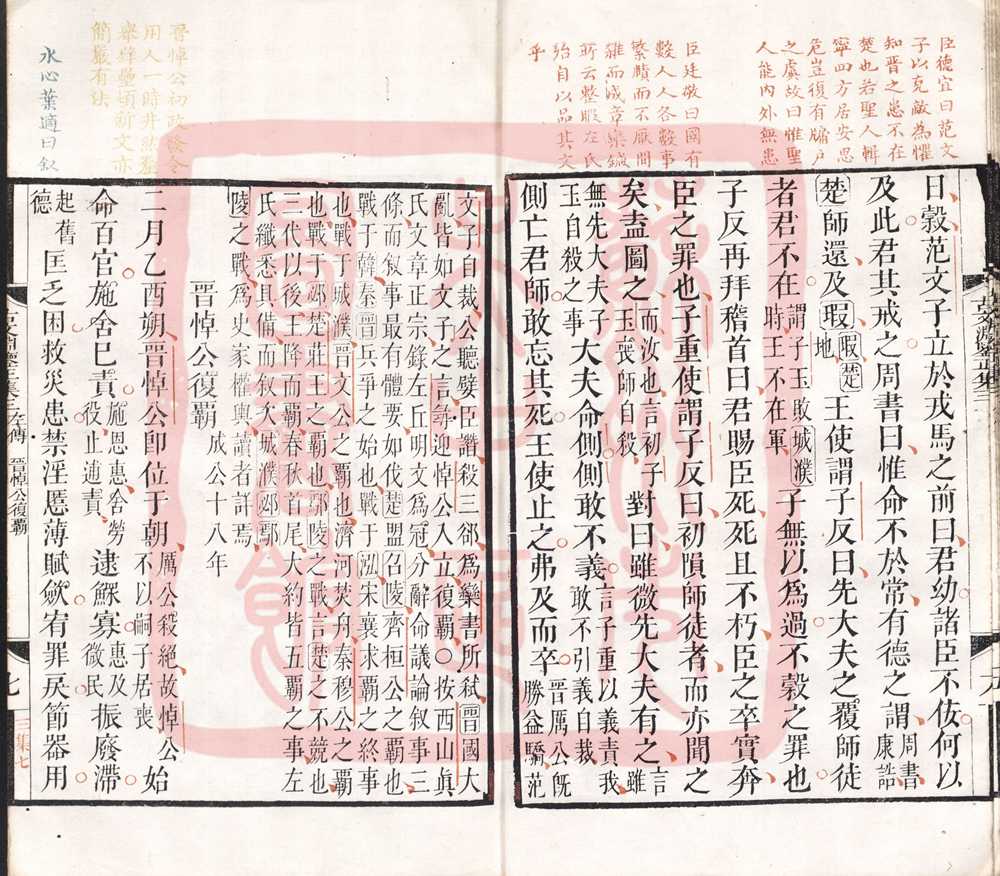 臣德宜曰范文
子以克敵為懼
知晉之患不在
楚也若聖人輯
寧四方居安思
危豈復有牖戶
之虞故曰惟聖
人能內外無患
臣廷敬曰國有
數人人各數事
繁賾而不厭間
雜而成章欒鍼
所云整暇左氏
殆自以品其文
乎
日榖范文子立於戎馬之前曰君幼諸臣不佞何以
及此君其戒之周書曰惟命不於常有德之謂周書康誥
楚師還及瑕瑕楚地王使謂子反曰先大夫之覆師徒
者君不在謂子玉敗城濮時王不在軍子無以爲過不榖之罪也
子反再拜稽首曰君賜臣死死且不朽臣之卒實奔
臣之罪也子重使謂子反曰初隕師徒者而亦聞之
矣盍圖之而汝也言初子玉喪師自殺對曰雖微先大夫有之言雖
無先大夫子玉自殺之事大夫命側側敢不義言子重以義責我敢不引義自裁
側亡君師敢忘其死王使止之弗及而卒晉厲公旣勝益驕范
晉悼公初政發令
用人一時井然整
舉辟壘頓新文亦
簡嚴有法
水心葉適曰叙
文子自裁公聽嬖臣譖殺三郤爲欒書所弒晉國大
亂皆如文子之言尋迎悼公入立復覇按西山眞
氏文章正宗錄左丘明文爲冠分解命議論叙事三
條而叙事最有體要如伐楚盟召陵齊桓公之覇也
戰于韓秦晉兵爭之始也戰于泓宋襄求覇之終事
也戰于城濮晉文公之覇也濟河焚舟秦穆公之覇
也戰于邲楚莊王之覇也鄢陵之戰言楚之不競也
三代以後王降而覇春秋首尾大約皆五覇之事左
氏纖悉具備而叙次城濮邲鄢
陵之戰爲史家權輿讀者詳焉
晉悼公復覇 成公十八年
二月乙酉朔晉悼公卽位于朝厲公殺絕故悼公不以嗣子居喪始
命百官施舍已責施恩惠舍勞役止逋責逮鰥寡惠及微民振廢滯
起舊德匡乏困救災患禁淫慝薄賦斂宥罪戾節器用
左傳 晉悼公復覇
七
三集七